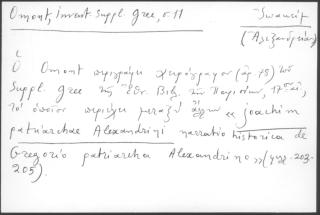 Omont, Invent. Suppl. Grec, σ. 11
Ἰωακείμ
(Ἀλεξανδρείας)
Ὁ Omont περιγράφει χειρόγραφον (ἀρ. 75) τοῦ
Suppl. Grec τῆς Ἐθν. Βιβ. τῶν Παρισίων, 17ου αἰ,
τὸ ὁποῖον περιέχει μεταξὺ ἄλλων «joachim
patriarchae Alexandrini narratio historica de
Gregorio patriarcha Alexandrino» (φφ. 203-
205).